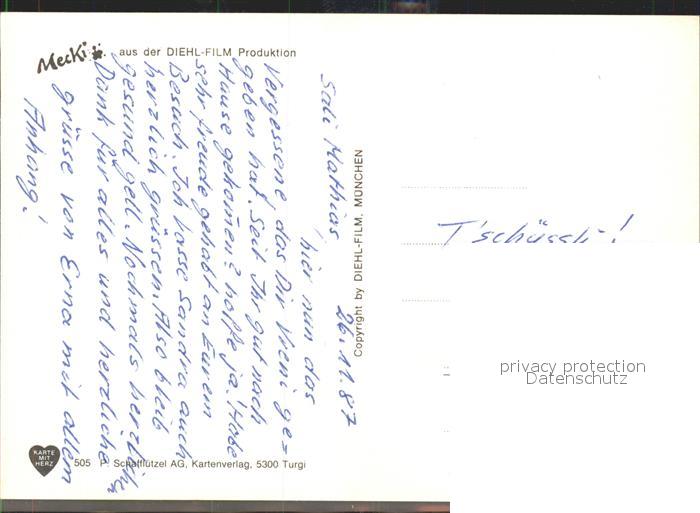 Mecki aus der DIEHL-FILM Produktion
26.11.87
Sali Matthias
hier nun das
Vergessene das Dir Vreni ge=
geben hat. Seit Ihr gut nach
Hause gekomen? hoffe ja! Habe
sehr freude gehabt an Eurem
Besuch. Ich lasse Sandra auch
herzlich grüssen. Also bleib
gesund gell. Nochmals herzlich
Dank für alles und herzliche
grüsse von Erna mit allem
Anhang!
Copyright by DIEHL-FILM, MÜNCHEN
T'schüssli!
privacy protection
Datenschutz
KARTE
MIT
HERZ
505 P. Schafflützel AG, Kartenverlag, 5300 Turgi